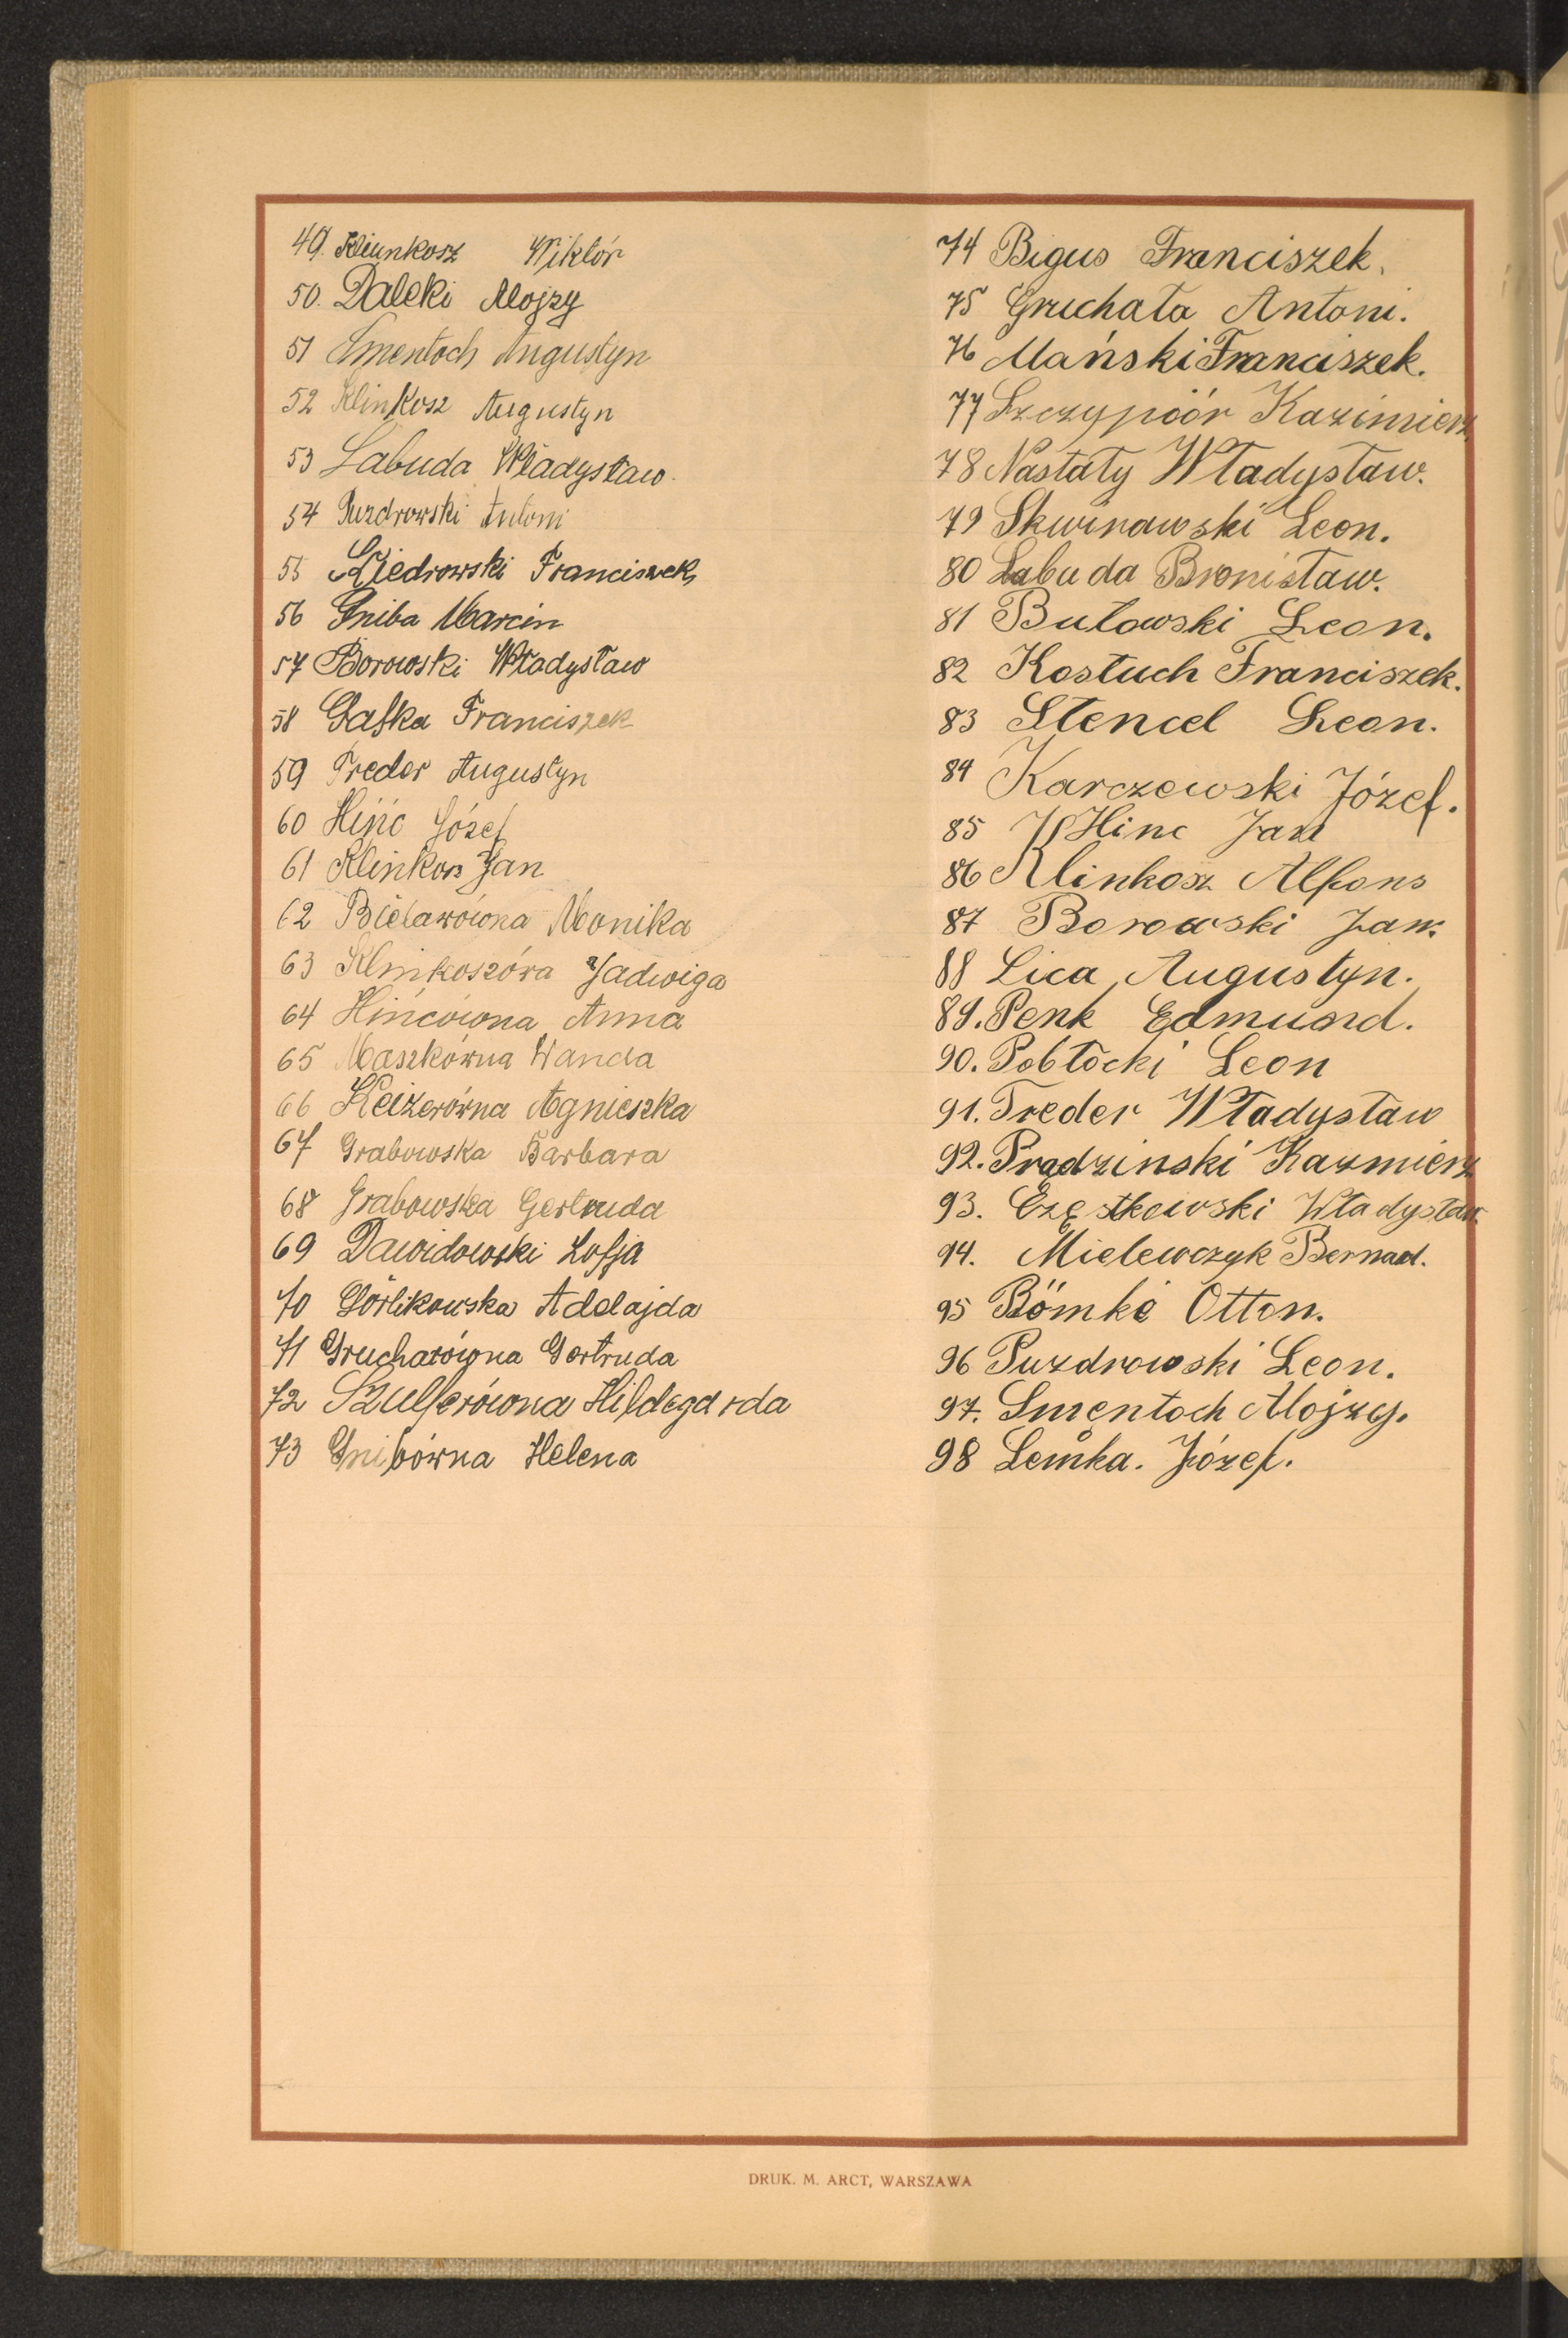 49. Kliunkosz Wiktór
50. Daleki Alojzy
51 Smentoch Augustyn
52 Klinkosz Augustyn
53 Labuda Władysław.
54 Puzdrowski Antoni
55 Liedrowski Franciszek
56 Gniba Marcin
57 Borowski Władysław
58 Gafka Franciszek
59 Treder Augustyn
60 Hińc Józef
61 Klinkosz Jan
62 Bielawówna Monika
63 Klinkoszóra Jadwiga
64 Hińcówna Anna
65 Maszkówna Wanda
66 Keizerówna Agnieszka
67 Grabowska Barbara
68 Grabowska Gertruda
69 Dawidowski Zofja
70 Görlikowska Adelajda
71 Gruchałówna Gertruda
72 Szulferówna Hildegarda
73 Gnibówna Helena
74 Bigus Franciszek.
75 Gruchała Antoni.
76 Mański Franciszek.
77 Szczypiór Kazimierz
78 Nastały Władysław.
79 Skwirawski Leon.
80 Labuda Bronisław.
81 Buławski Leon.
82 Kostuch Franciszek.
83 Stencel Leon.
84 Karczewski Józef.
85 Hinc Jan
86 Klinkosz Alfons
87 Borowski Jan.
88 Lica Augustyn.
89. Penk Edmund.
90. Pobłocki Leon
91. Treder Władysław
92. Prądzinski Kazmierz
93. Częstkowski Władysław
94. Mielewczyk Bernad.
95 Bömke Otton.
96 Puzdrowski Leon.
97. Smentoch Alojzy.
98 Lemka. Józef.
DRUK. M. ARCT, WARSZAWA